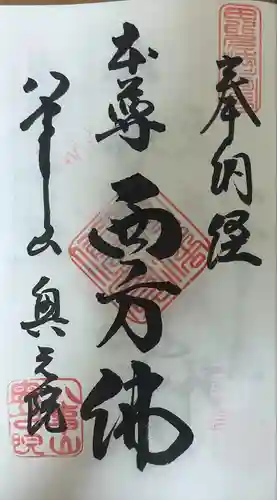 奉納経
本尊
西方佛
八事山
奥之院
八事山
奥之院